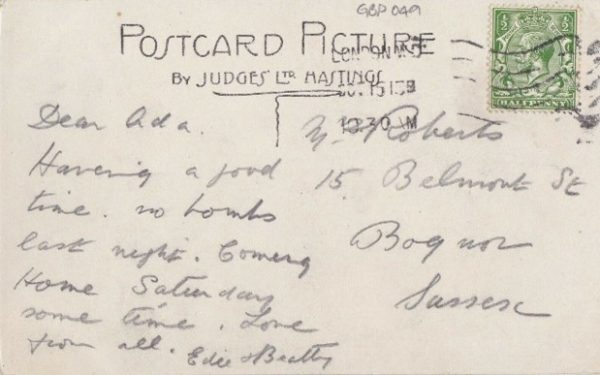 GBP 049
POSTCARD PICTURE
BY JUDGES LTD HASTINGS
LONDON
OC 15 15
12.30 AM
HALFPENNY
Dear Ada.
Having a good
time. no bombs
last night. Coming
Home Saturday
some time. Love
from all. Edie & Beatty
Roberts
15. Belmont St
Bognor
Sussex